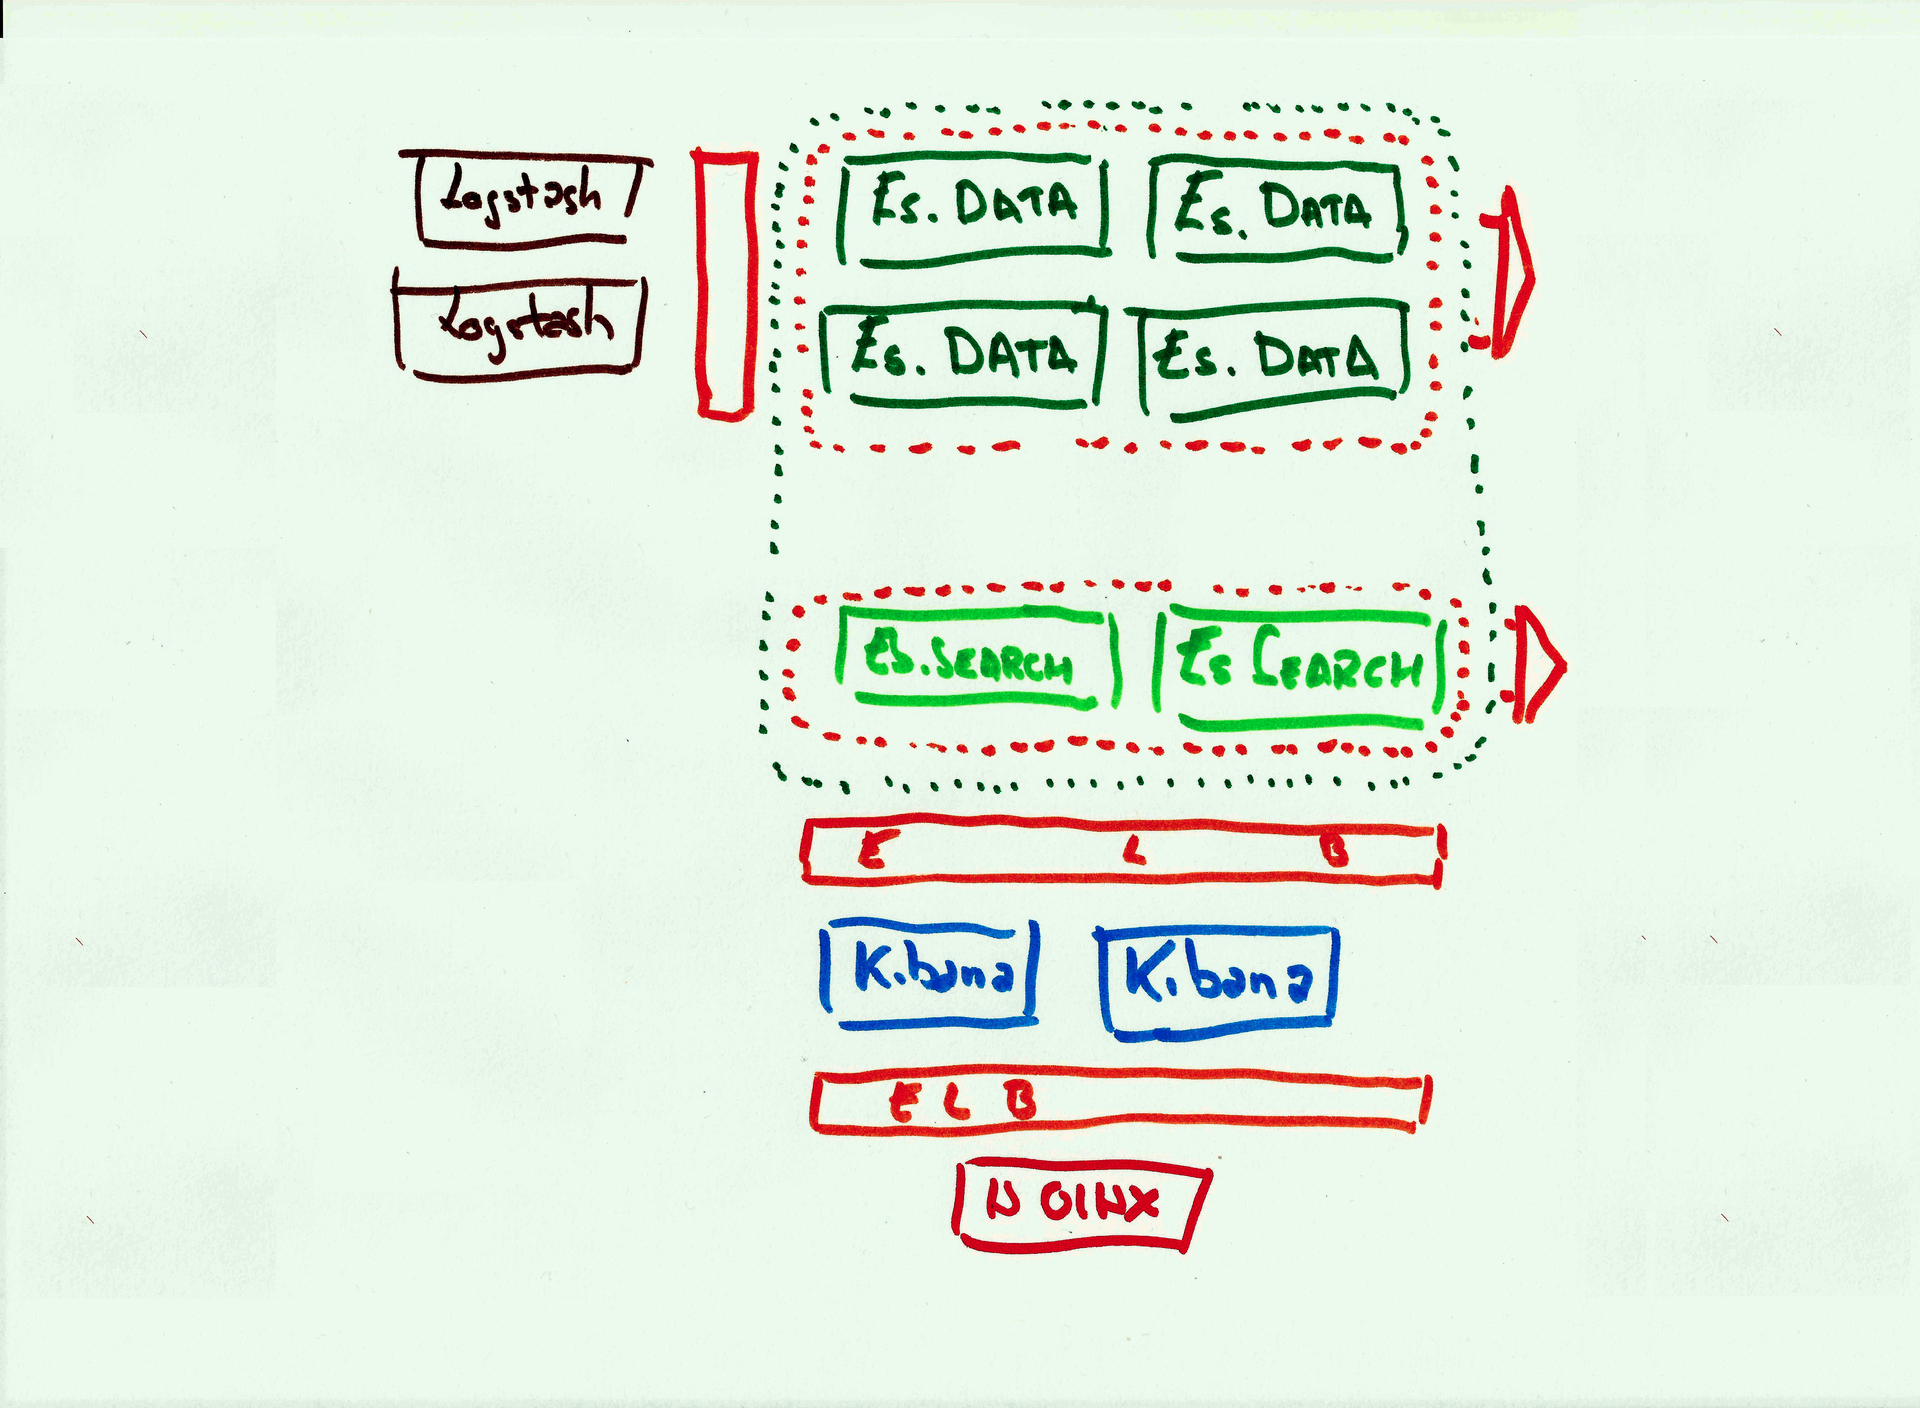 Logstash
Es. DATA
Es. DATA
Logstash
Es. DATA
Es. DATA
Es. SEARCH
Es SEARCH
E L B
Kibana
Kibana
E L B
NGINX